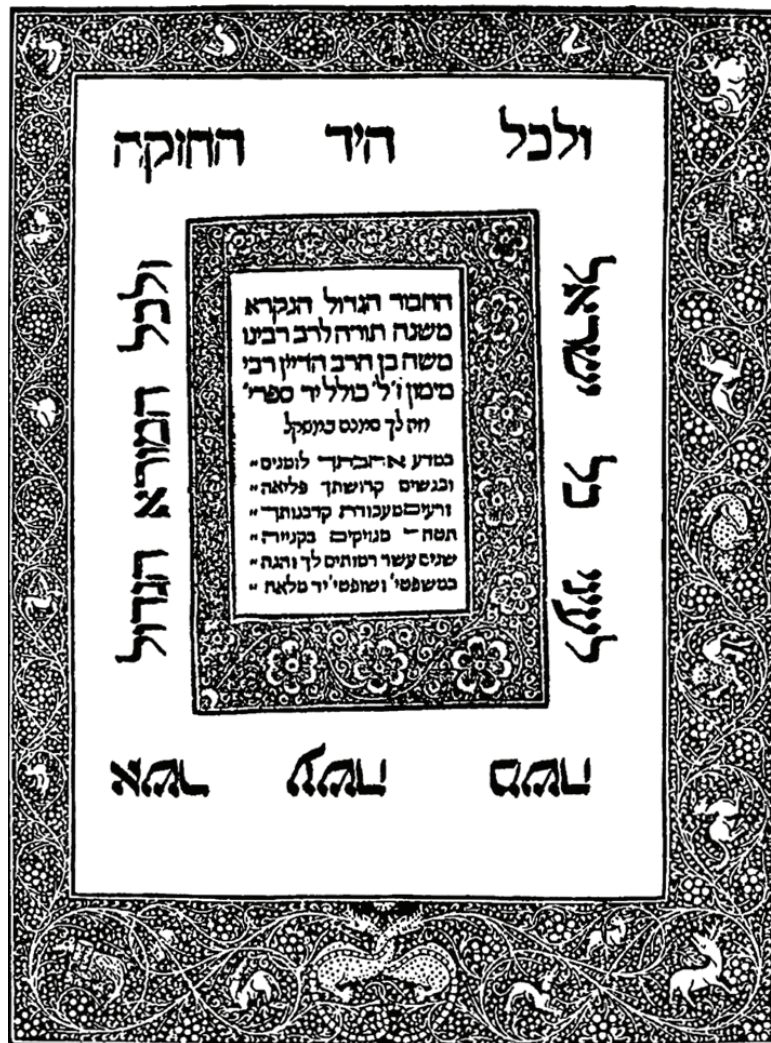 ולכל היד החזקה
ולכל המורא הגדול
אשר עשה משה
לעיני כל ישראל
החבור הגדול הנקרא
משנה תורה לרב רבינו
משה בן הרב הדיין רבי
מימון ז'ל' כולל יד ספרי'
וזה לך סמנם במשקל
במדע אהבתך לזמנים״
ובנשים קדושתך פליאה״
זרעים מעבודת קרבנותך״
תטהר מנזיקים בקנייה״
שנים עשר רמזתים לך והנה״
במשפטי' ושופטי' יד מלאה״